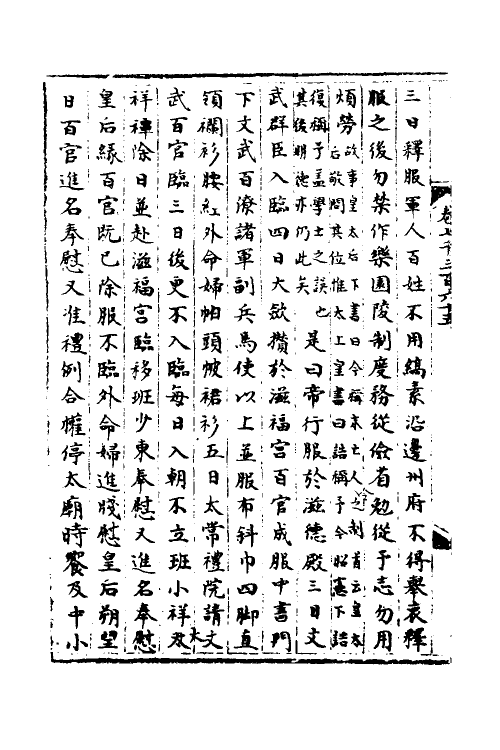 卷七千三百六十五
三日釋服軍人百姓不用縞素沿邊州府不得舉哀釋
服之後勿禁作樂園陵制度務從儉省勉從予志勿用
煩勞故事皇太后下書曰令稱未亡人今之制首云皇太
后敬問其位惟太上皇書曰誥稱予今昭憲下誥
復稱予蓋學士之誤也
其後明德亦仍此矣是日帝行服於滋德殿三日文
武群臣入臨四日大斂攢於滋福宮百官成服中書門
下文武百僚諸軍副兵馬使以上並服布斜巾四脚直
領襴衫腰絰外命婦帕頭帔裙衫五日太常禮院請文
武百官臨三日後更不入臨每日入朝不立班小祥及大
祥禫除日並赴滋福宮臨移班少東奉慰又進名奉慰
皇后緣百官既已除服不臨外命婦進牋慰皇后朔望
日百官進名奉慰又准禮例合權停太廟時饗及中小